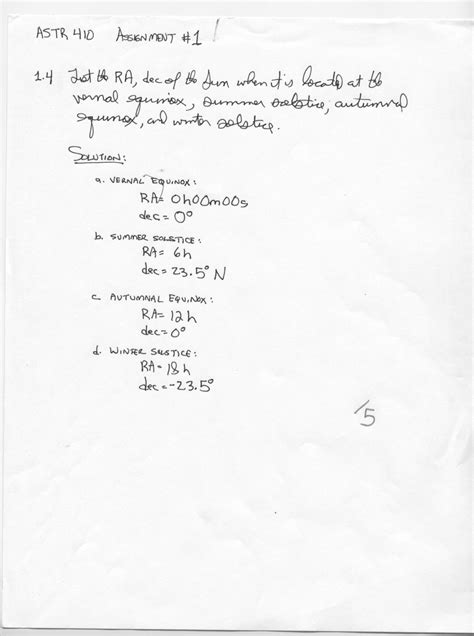 ASTR 410 ASSIGNMENT #1
1.4 List the RA, dec of the Sun when it is located at the
vernal equinox, summer solstice, autumnal
equinox, and winter solstice.
SOLUTION:
a. VERNAL EQUINOX:
RA= 0h00m00s
dec= 0°
b. SUMMER SOLSTICE:
RA= 6h
dec= 23.5° N
c. AUTUMNAL EQUINOX:
RA= 12h
dec= 0°
d. WINTER SOLSTICE:
RA= 18h
dec= -23.5°
/5